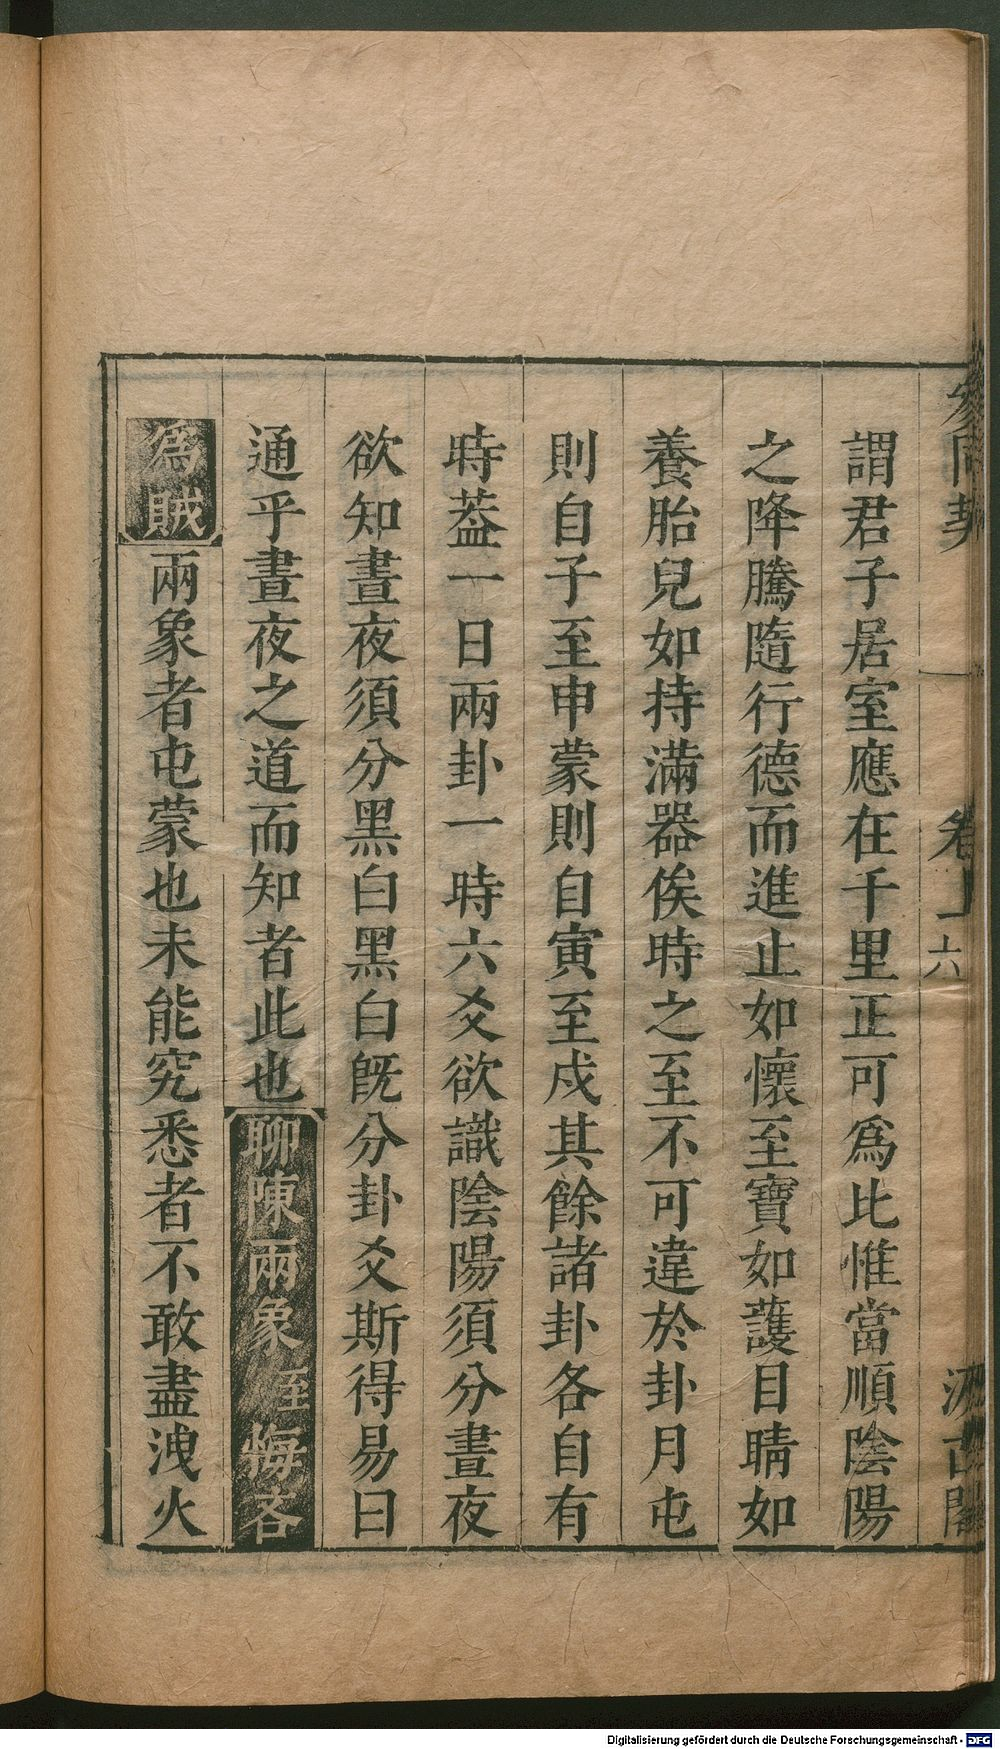 參同契 卷上 六 汲古閣
謂君子居室應在千里正可爲比惟當順陰陽
之降騰隨行德而進止如懷至寶如護目睛如
養胎兒如持滿器俟時之至不可違於卦月屯
則自子至申蒙則自寅至戍其餘諸卦各自有
時葢一日兩卦一時六爻欲識陰陽須分晝夜
欲知晝夜須分黑白黑白旣分卦爻斯得易曰
通乎晝夜之道而知者此也聊陳兩象至悔吝
爲賊兩象者屯蒙也未能究悉者不敢盡洩火
Digitalisierung gefördert durch die Deutsche Forschungsgemeinschaft - DFG